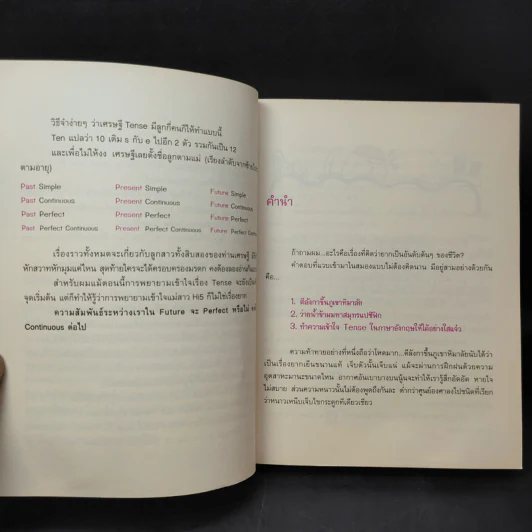 วิธีจำง่ายๆ ว่าเศรษฐี Tense มีลูกกี่คนก็ให้ทำแบบนี้
Ten แปลว่า 10 เติม s กับ e ไปอีก 2 ตัว รวมกันเป็น 12
และเพื่อไม่ให้งง เศรษฐีเลยตั้งชื่อลูกตามแม่ (เรียงลำดับจาก
ตามอายุ)
Past Simple Present Simple Future Simple
Past Continuous Present Continuous Future Continuous
Past Perfect Present Perfect Future Perfect
Past Perfect Continuous Present Perfect Continuous Future Perfect
เรื่องราวทั้งหมดจะเกี่ยวกับลูกสาวทั้งสิบสองของท่านเศรษฐี
หักสวาทหักมุมแค่ไหน สุดท้ายใครจะได้ครอบครองมรดก คงต้องลองอ่าน
สำหรับผมแม้ตอนนี้การพยายามเข้าใจเรื่อง Tense จะยัง
จุดเริ่มต้น แต่ก็ทำให้รู้ว่าการพยายามเข้าแม่สาว Hi5 ก็ไม่ใช่เรื่องยาก
ความสัมพันธ์ระหว่างเราใน Future จะ Perfect หรือไม่
Continuous ต่อไป
คำนำ
ถ้าถามผม...อะไรคือเรื่องที่คิดว่ายากเป็นอันดับต้นๆ ของชีวิต?
คำตอบที่แวบเข้ามาในสมองแบบไม่ต้องคิดนาน มีอยู่สามอย่างด้วยกัน
คือ...
1. ตีลังกาขึ้นภูเขาหิมาลัย
2. ว่ายน้ำข้ามมหาสมุทรแปซิฟิก
3. ทำความเข้าใจ Tense ในภาษาอังกฤษให้ได้อย่างใสแจ๋ว
ความท้าทายอย่างที่หนึ่งถือว่าโหดมาก...ตีลังกาขึ้นภูเขาหิมาลัยนับได้ว่า
เป็นเรื่องยากเย็นขนานแท้ เจ็บตัวนั้นเจ็บแน่ แม้จะผ่านการฝึกฝนด้วยความ
อุตสาหะมานะขนาดไหน อากาศอันเบาบางบนนู้นจะทำให้เรารู้สึกอึดอัด หายใจ
ไม่สบาย ส่วนความหนาวนั้นไม่ต้องพูดถึงกันละ ต่ำกว่าศูนย์องศาลงไปชนิดที่เรียก
ว่าหนาวเหน็บเจ็บไขกระดูกทีเดียวเชียว